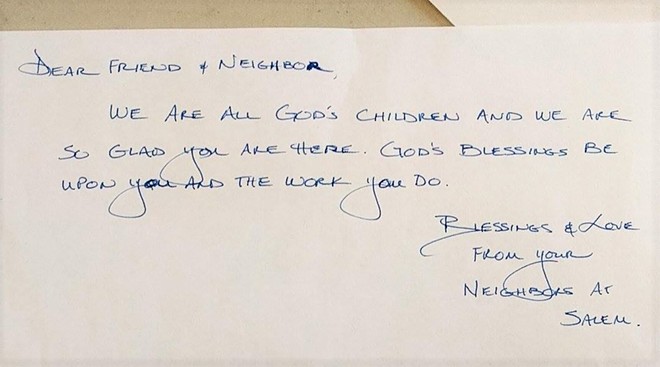 Dear Friend & Neighbor,
We are all God's children and we are
so glad you are here. God's blessings be
upon you and the work you do.
Blessings & Love
from your
Neighbors at
Salem.